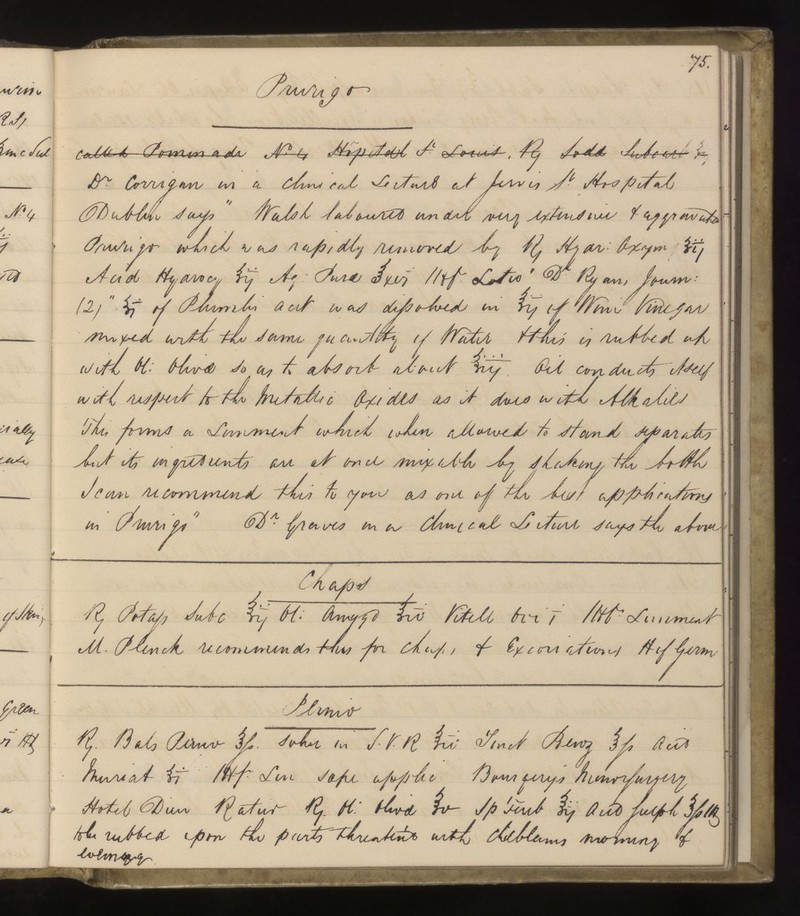 75.
Prurigo
called Pommade No 4 Hôpital St Louis. ℞ Soda Subcarb
Dr Corrigan in a Clinical Lecture at Jervis St Hospital
Dublin says " Walsh laboured under very extensive & aggravated
Prurigo which was rapidly removed by ℞ Hydr: Oxym
Acid Hydrocy ʒij Aq: Pura Lotio" Dr Ryans Journ:
(2) " of Plumbi Acet was dissolved in of Wine Vinegar
mixed with the same quantity of Water & this is rubbed up
with Ol: Oliva so as to absorb about Oil conducts itself
with respect to the Metallic Oxides as it does with Alkalies
This forms a Linnment which when allowed to stand separates
but its ingredients are at once mixable by shaking the bottle
I can recommend this to you as one of the best applications
in Prurigo" Dr Graves in a Clinical Lecture says the above
Chaps
℞ Potass Subc Ol: Amygd Vitell Ovi i Linnment
M. Plenck recommends this for chaps & Excoriations
Pernio
℞. Bals Peruv solve in S.V.R Tinct Benz Acid
Muriat Lin sape applic Minor Surgery
Hotel Dieu ℞ Ol: Oliva Sp Tereb Acid Sulph
to be rubbed upon the parts threatened with chilblains morning &
evening
No 4
of Skin
Green